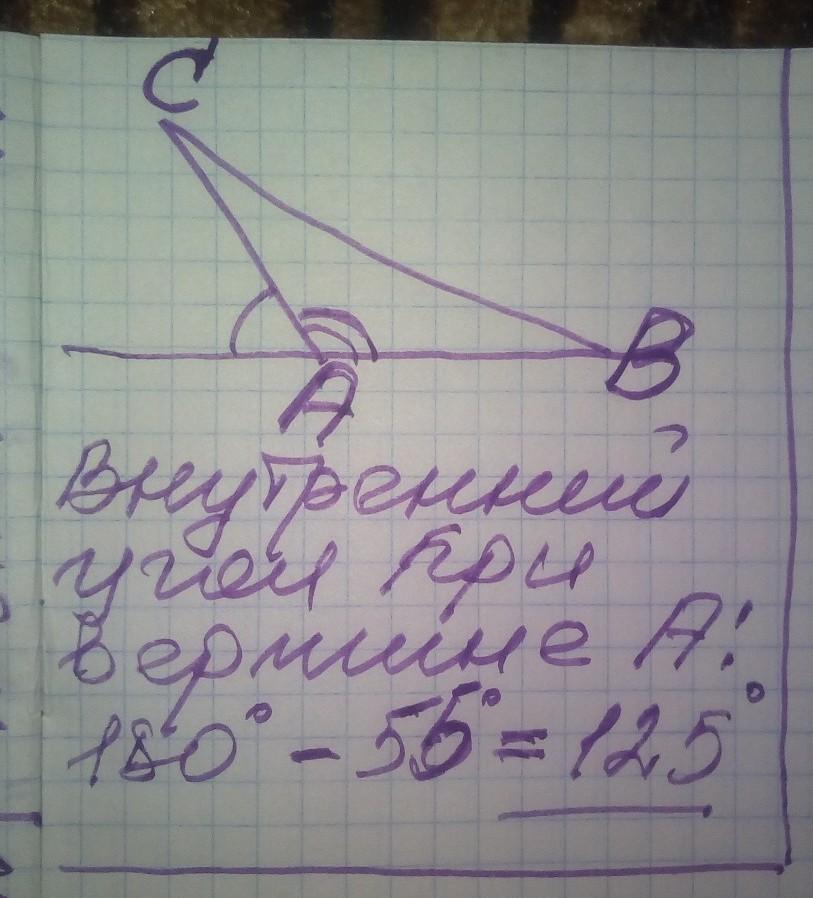 C
A
B
Внутренний
угол при
вершине А:
180° - 55° = 125°